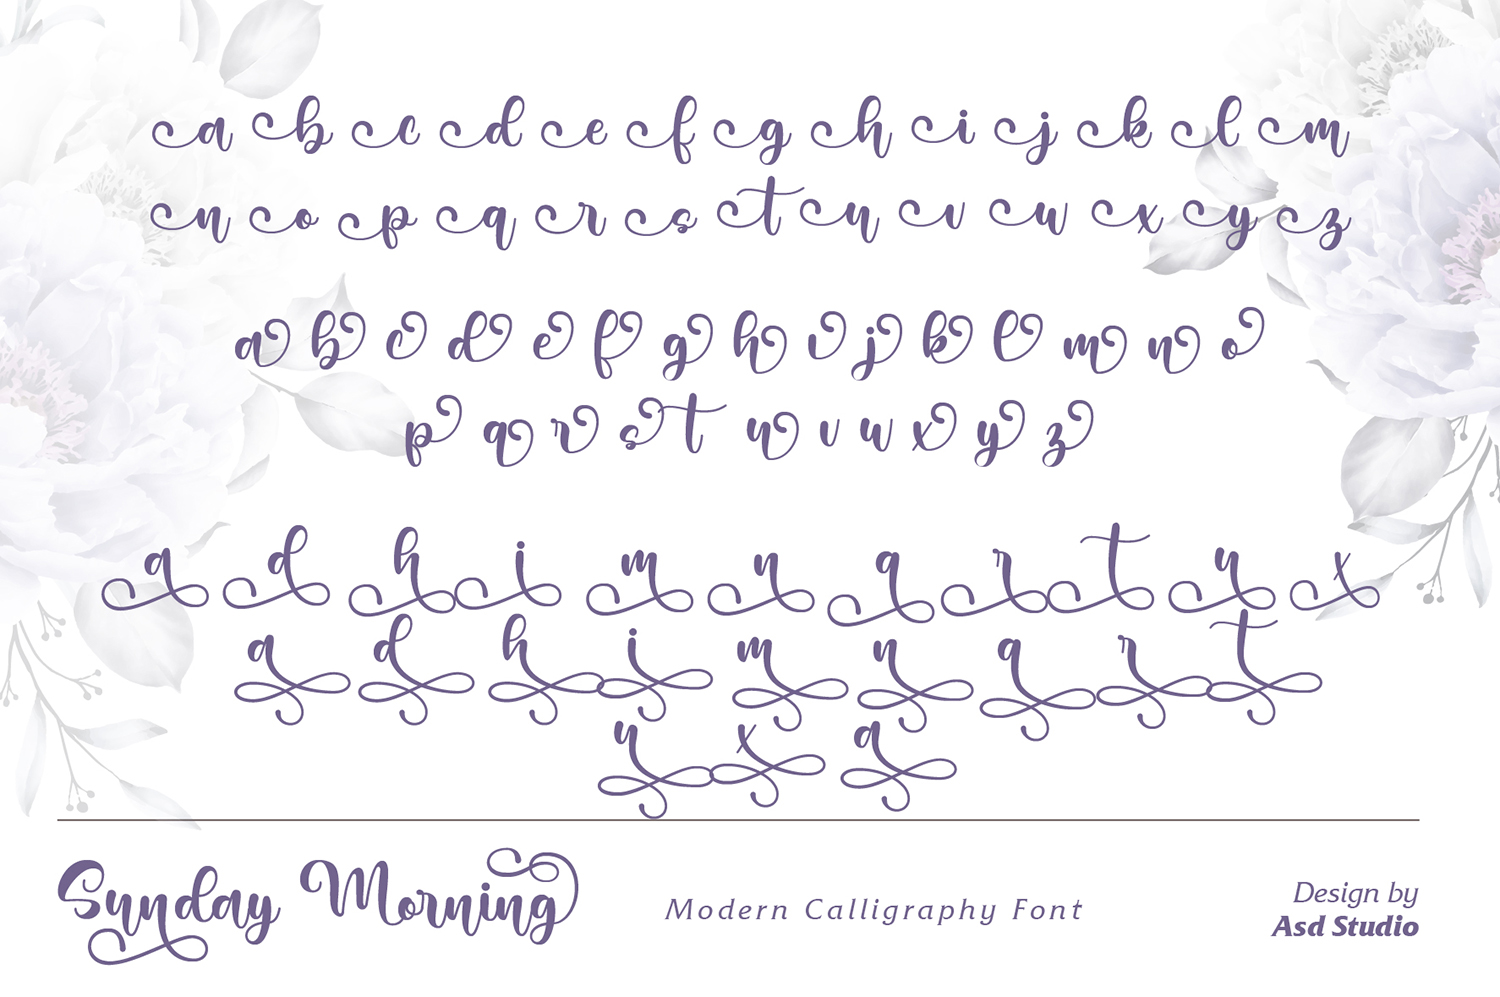 a b c d e f g h i j k l m
n o p q r s t u v w x y z
a b c d e f g h i j k l m n o
p q r s t u v w x y z
a d h i m n q r t u x
a d h i m n q r t
u x a
Sunday Morning
Modern Calligraphy Font
Design by
Asd Studio